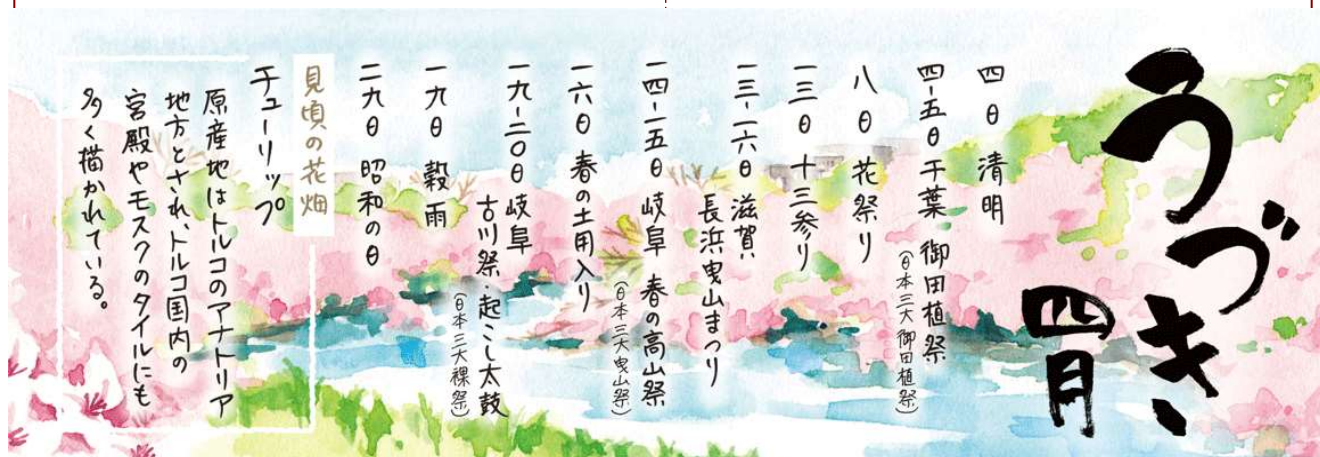 うづき、
四月
四日 清明
四-五日 千葉 御田植祭
（日本三大御田植祭）
八日 花祭り
一三日 十三参り
一三-一六日 滋賀
長浜曳山まつり
一四-一五日 岐阜 春の高山祭
（日本三大曳山祭）
一六日 春の土用入り
一九-二〇日 岐阜
古川祭・起こし太鼓
（日本三大裸祭）
一九日 穀雨
二九日 昭和の日
見頃の花畑
チューリップ
原産地はトルコのアナトリア
地方とされ、トルコ国内の
宮殿やモスクのタイルにも
多く描かれている。